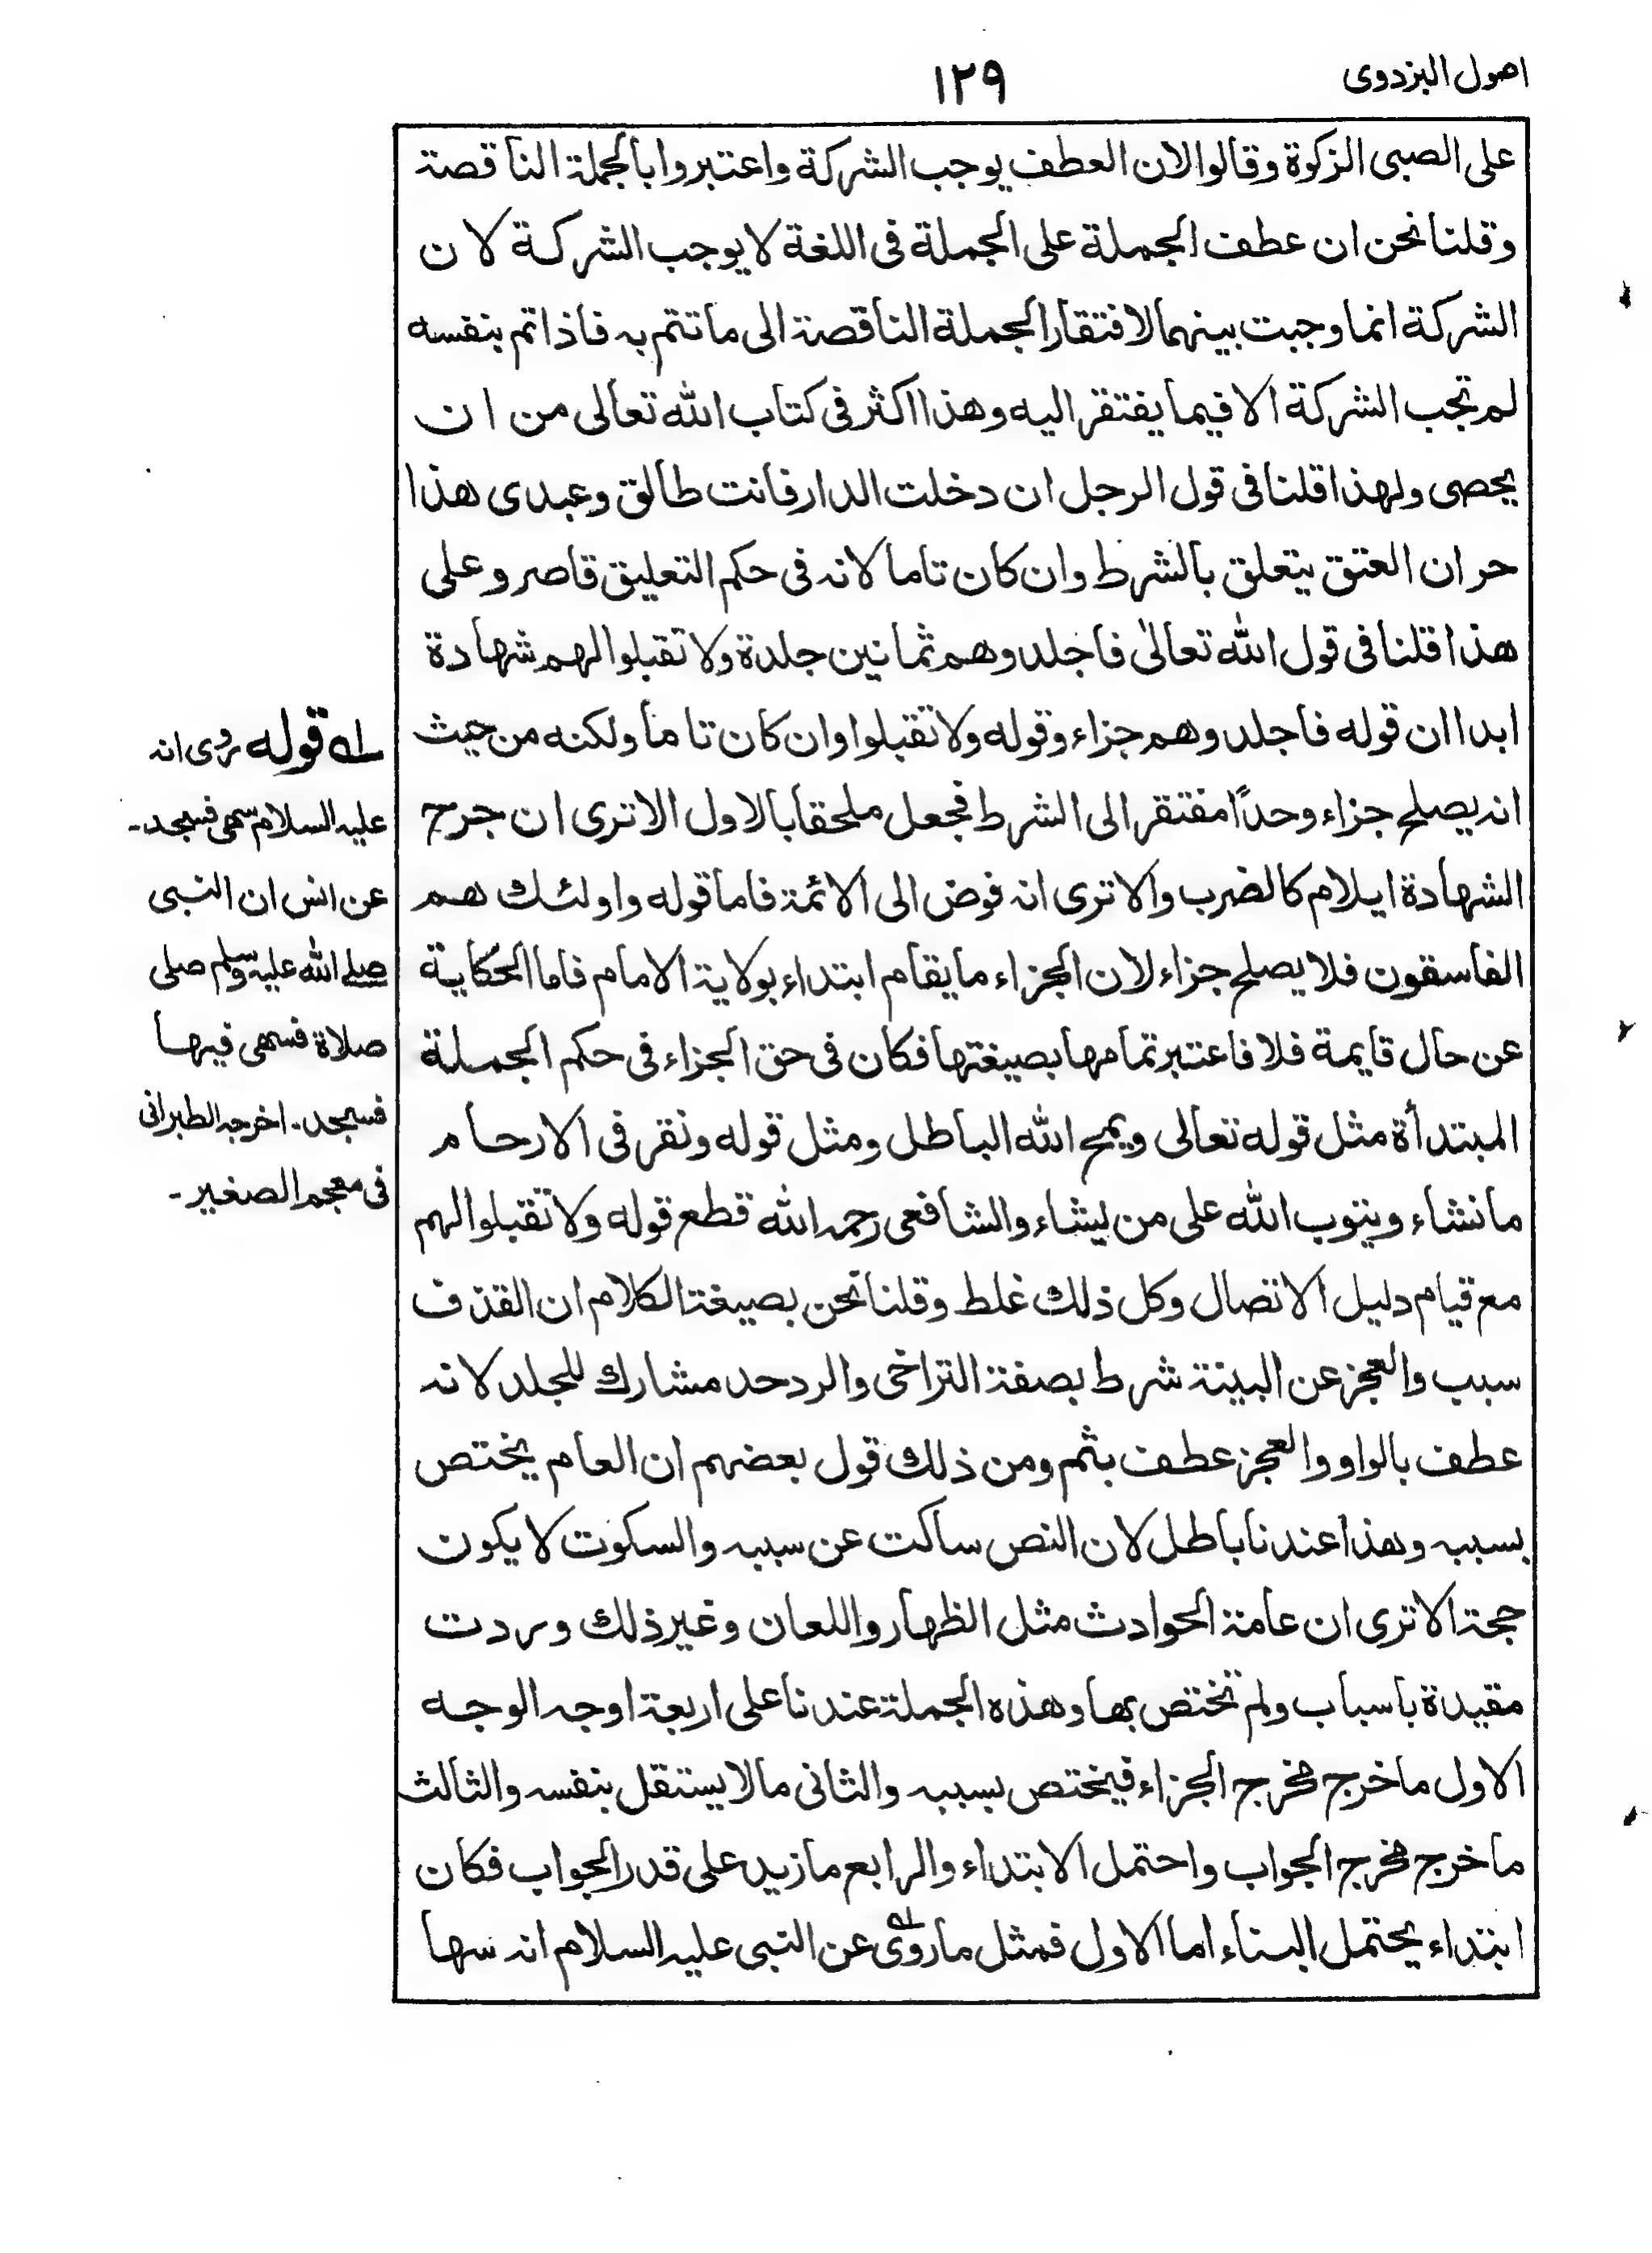 اصول البزدوی
۱۲۹
علی الصبی الزکوة وقالوا لان العطف یوجب الشرکة واعتبروا بالجملة الناقصة
وقلنا نحن ان عطف الجملة علی الجملة فی اللغة لا یوجب الشرکة لان
الشرکة انما وجبت بینهما لافتقار الجملة الناقصة الی ما تتم به فاذا تم بنفسه
لم تجب الشرکة الا فیما یفتقر الیه وهذا اکثر فی کتاب الله تعالی من ان
یحصی ولهذا قلنا فی قول الرجل ان دخلت الدار فانت طالق وعبدی هذا
حر ان العتق یتعلق بالشرط وان کان تاما لانه فی حکم التعلیق قاصر وعلی
هذا قلنا فی قول الله تعالیٰ فاجلدوهم ثمانین جلدة ولا تقبلوا لهم شهادة
ابدا ان قوله فاجلدوهم جزاء وقوله ولا تقبلوا وان کان تاما ولکنه من حیث
انه یصلح جزاء وحداً مفتقر الی الشرط فجعل ملحقا بالاول الا تری ان جرح
الشهادة ایلام کالضرب والا تری انه فوض الی الائمة فاما قوله واولئك هم
الفاسقون فلا یصلح جزاء لان الجزاء ما یقام ابتداء بولایة الامام فاما الحکایة
عن حال قایمة فلا فاعتبر تمامها بصیغتها فکان فی حق الجزاء فی حکم الجملة
المبتدأة مثل قوله تعالی ویمح الله الباطل ومثل قوله ونقر فی الارحام
ما نشاء ویتوب الله علی من یشاء والشافعی رحمه الله قطع قوله ولا تقبلوا لهم
مع قیام دلیل الاتصال وکل ذلك غلط وقلنا نحن بصیغة الکلام ان القذف
سبب والعجز عن البینة شرط بصفة التراخی والرد حد مشارك للجلد لانه
عطف بالواو والعجز عطف بثم ومن ذلك قول بعضهم ان العام یختص
بسببه وهذا عندنا باطل لان النص ساکت عن سببه والسکوت لا یکون
حجة الا تری ان عامة الحوادث مثل الظهار واللعان وغیر ذلك وردت
مقیدة باسباب ولم تختص بها وهذه الجملة عندنا علی اربعة اوجه الوجه
الاول ما خرج مخرج الجزاء فیختص بسببه والثانی ما لا یستقل بنفسه والثالث
ما خرج مخرج الجواب واحتمل الابتداء والرابع ما زید علی قدر الجواب فکان
ابتداء یحتمل البناء اما الاول فمثل ما روی عن النبی علیه السلام انه سها
له قوله روی انه
علیه السلام سهی فسجد۔
عن انس ان النبی
صلے الله علیه وسلم صلی
صلاة فسهی فیها
فسجد۔ اخرجه الطبرانی
فی معجم الصغیر۔